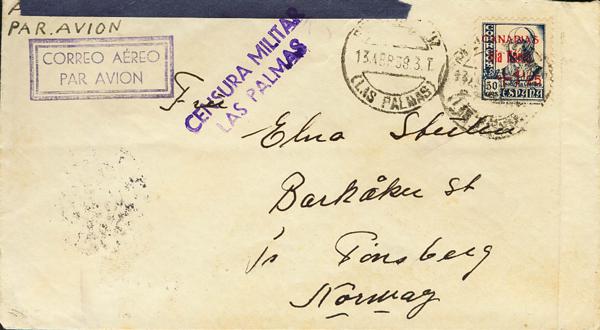 PAR.AVION
CORREO AÉREO
PAR AVION
CENSURA MILITAR
LAS PALMAS
13 ABR 38.3.T
(LAS PALMAS)
CANARIAS
50
ESPAÑA
Elna
Barkåker St
Tönsberg
Norway